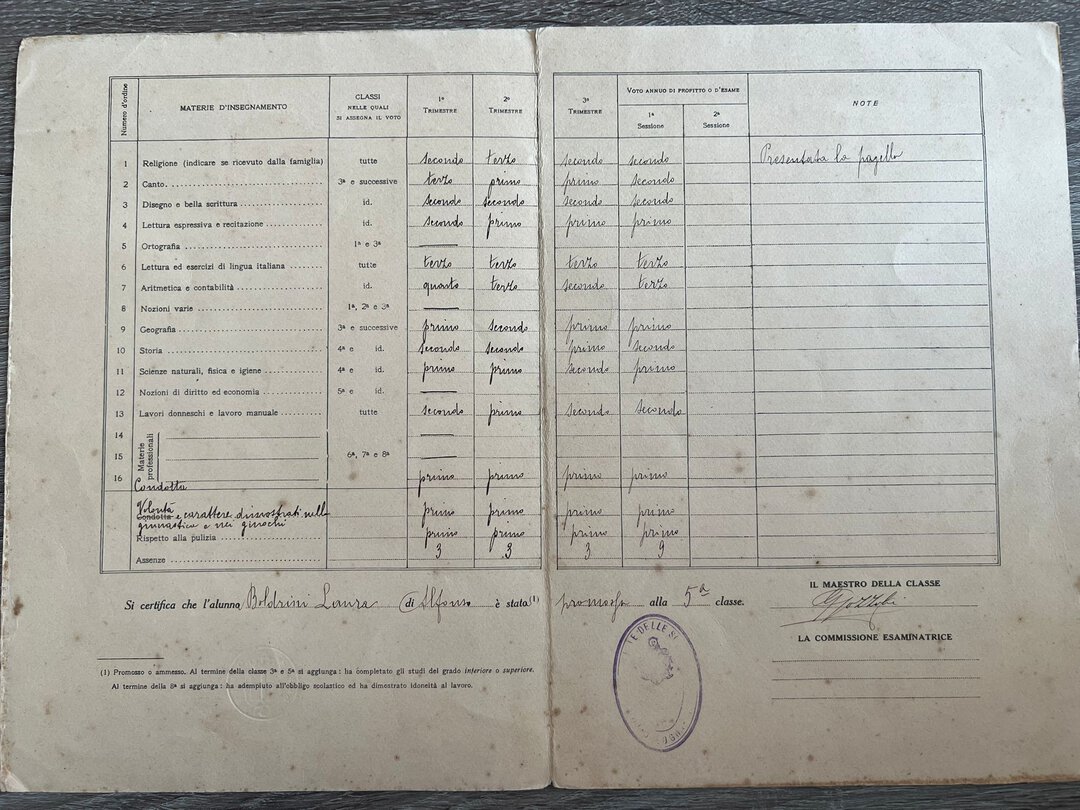 Numero d'ordine MATERIE D'INSEGNAMENTO CLASSI NELLE QUALI SI ASSEGNA IL VOTO 1º TRIMESTRE 2º TRIMESTRE 3º TRIMESTRE VOTO ANNUO DI PROFITTO O D'ESAME 1ª Sessione 2ª Sessione NOTE
1 Religione (indicare se ricevuto dalla famiglia) tutte secondo terzo secondo secondo Presentata la pagella
2 Canto 3ª e successive terzo primo primo secondo
3 Disegno e bella scrittura id. secondo secondo secondo secondo
4 Lettura espressiva e recitazione id. secondo primo primo primo
5 Ortografia 1ª e 3ª
6 Lettura ed esercizi di lingua italiana tutte terzo terzo terzo terzo
7 Aritmetica e contabilità id. quarto terzo secondo terzo
8 Nozioni varie 1ª, 2ª e 3ª
9 Geografia 3ª e successive primo secondo primo primo
10 Storia 4ª e id. secondo secondo primo secondo
11 Scienze naturali, fisica e igiene 4ª e id. primo primo secondo primo
12 Nozioni di diritto ed economia 5ª e id.
13 Lavori donneschi e lavoro manuale tutte secondo primo secondo secondo
14
15 Materie professionali 6ª, 7ª e 8ª
16
Condotta primo primo primo primo
Volontà
Condotta e carattere dimostrati nella primo primo primo primo
ginnastica e nei giuochi
Rispetto alla pulizia primo primo primo primo
Assenze 3 3 3 9
Si certifica che l'alunno Boldrini Laura di Alfonso è stata (1) promossa alla 5ª classe.
IL MAESTRO DELLA CLASSE
LA COMMISSIONE ESAMINATRICE
TE DELLE SI
(1) Promosso o ammesso. Al termine della classe 3ª e 5ª si aggiunga: ha completato gli studi del grado inferiore o superiore.
Al termine della 8ª si aggiunga: ha adempiuto all'obbligo scolastico ed ha dimostrato idoneità al lavoro.